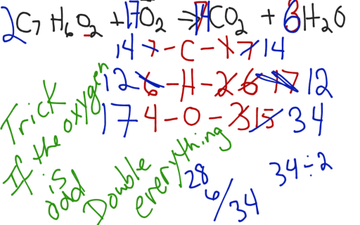 2C7 H6O2 + 17O2 → 14CO2 + 6H2O
14 7 - C - 1 7 14
12 6 - H - 2 6 12
17 4 - O - 3 15 34
Trick
If the oxygen
is
odd
Double
everything
28
6/34
34÷2